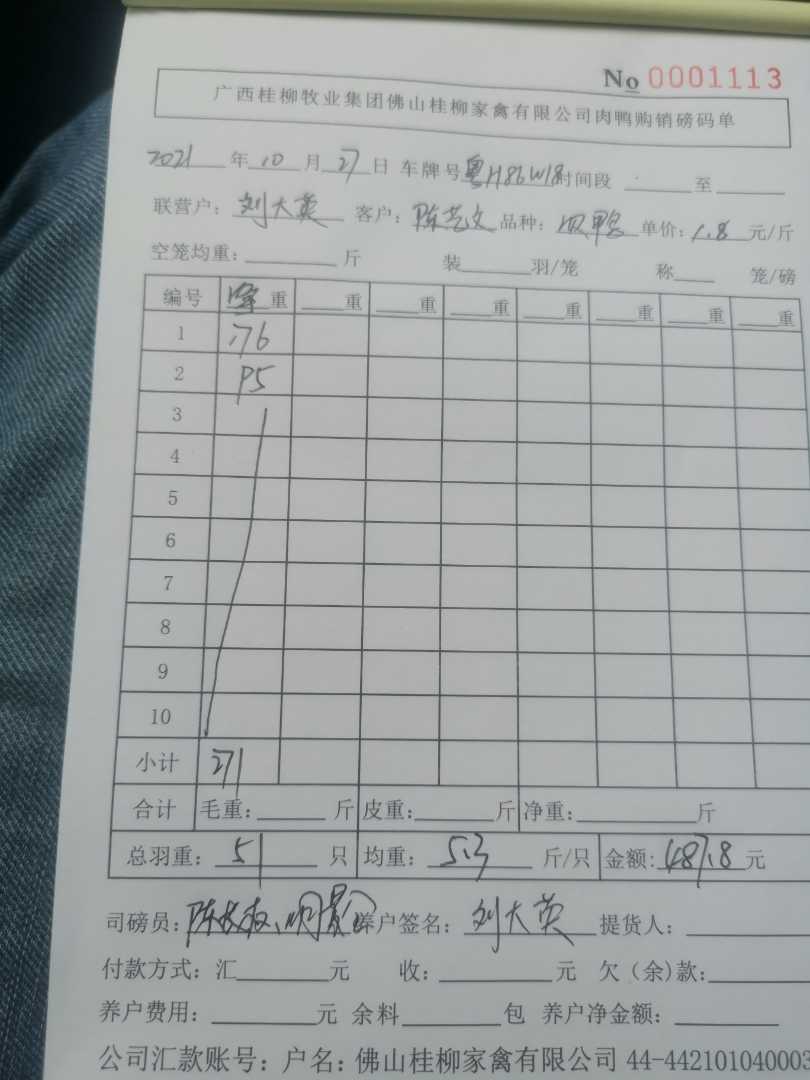 No 0001113
广西桂柳牧业集团佛山桂柳家禽有限公司肉鸭购销磅码单
2021 年 10 月 27 日 车牌号 粤H86W18 时间段 ____至____
联营户: 刘大英 客户: 陈艺文 品种: 单价: 1.8 元/斤
空笼均重:____斤 装____羽/笼 称____笼/磅
编号 重 重 重 重 重 重 重 重
1 176
2 95
3
4
5
6
7
8
9
10
小计 271
合计 毛重:____斤 皮重:____斤 净重:____斤
总羽重: 51 只 均重: 5.3 斤/只 金额: 487.8 元
司磅员: 养户签名: 刘大英 提货人:
付款方式: 汇____元 收:____元 欠(余)款:
养户费用:____元 余料____包 养户净金额:
公司汇款账号: 户名: 佛山桂柳家禽有限公司 44-442101040003